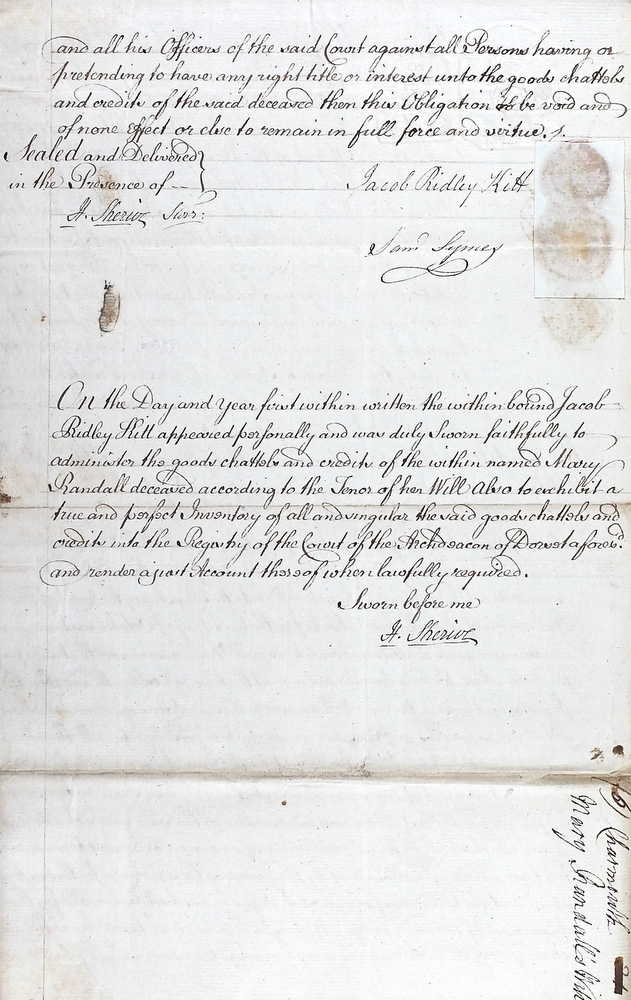 and all his Officers of the said Court against all Persons having or
pretending to have any right title or interest unto the goods chattels
and credits of the said deceased then this Obligation to be void and
of none Effect or else to remain in full force and virtue.
Sealed and Delivered
in the Presence of
Jacob Ridley Kitt
H. Sherive Surr:
Sam.l Symes
On the Day and Year first within written the within bound Jacob
Ridley Kitt appeared personally and was duly Sworn faithfully to
administer the goods chattels and credits of the within named Mary
Randall deceased according to the Tenor of her Will Also to exhibit a
true and perfect Inventory of all and singular the said goods chattels and
credits into the Registry of the Court of the Archdeacon of Dorset afores.d
and render a just Account thereof when lawfully required.
Sworn before me
H. Sherive
Charmouth
Mary Randall's Will